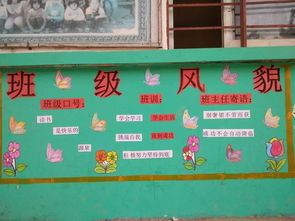 班级风貌
班级口号:
读书
是快乐的
源泉
班训:
学会学习 学会生活
挑战自我 找到成功
积极努力坚持到底
班主任寄语:
别奢望不劳而获
成功不会自动降临